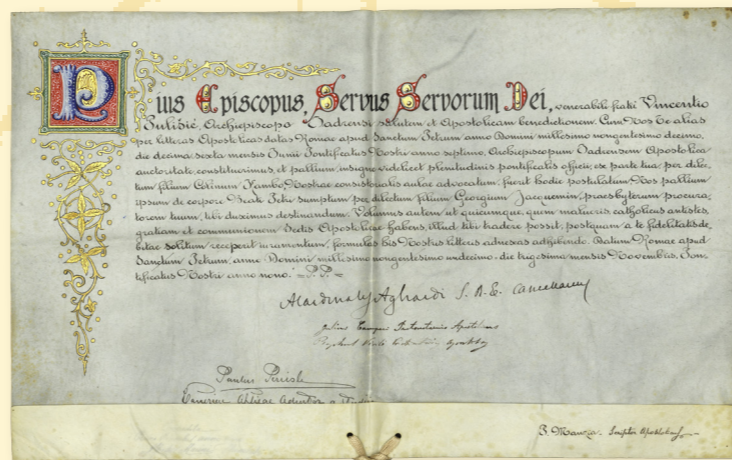 Pius Episcopus, Servus Servorum Dei, venerabili fratri Vincentio
Pulišić, Archiepiscopo Jadrensi salutem et Apostolicam benedictionem. Cum Nos Te alias
per litteras Apostolicas datas Romae apud Sanctum Petrum anno Domini millesimo nongentesimo decimo,
die decima sexta mensis Junii Pontificatus Nostri anno septimo, Archiepiscopum Jadrensem Apostolica
auctoritate constituerimus, et pallium, insigne videlicet plenitudinis pontificalis officii, ex parte tua, per dilec-
tum filium Nostrae consistorialis aulae advocatum, fuerit hodie postulatum, Nos pallium
ipsum de corpore Beati Petri sumptum per dilectum filium Georgium Jacquemin, praesbyterum procura-
torem tuum, tibi duximus destinandum. Volumus autem ut quicumque, quem malueris catholicus antistes,
gratiam et communionem Sedis Apostolicae habens, illud tibi tradere possit, postquam a te fidelitatis de-
bitae solitum receperit iuramentum, formulas his Nostris litteris adnexas adhibendo. Datum Romae apud
Sanctum Petrum anno Domini millesimo nongentesimo undecimo die trigesima mensis Novembris, Pon-
tificatus Nostri anno nono.
A Cardinalis Agliardi S. R. E. Cancellarius